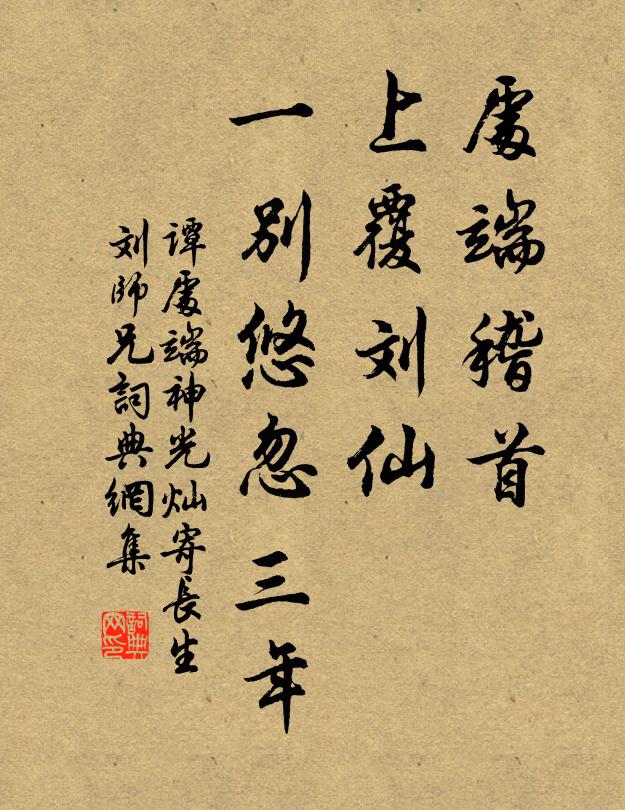 處端稽首
上覆刘仙
一別悠忽三年
谭處端神光灿寄長生
刘師兄詞典網集
詞典網印